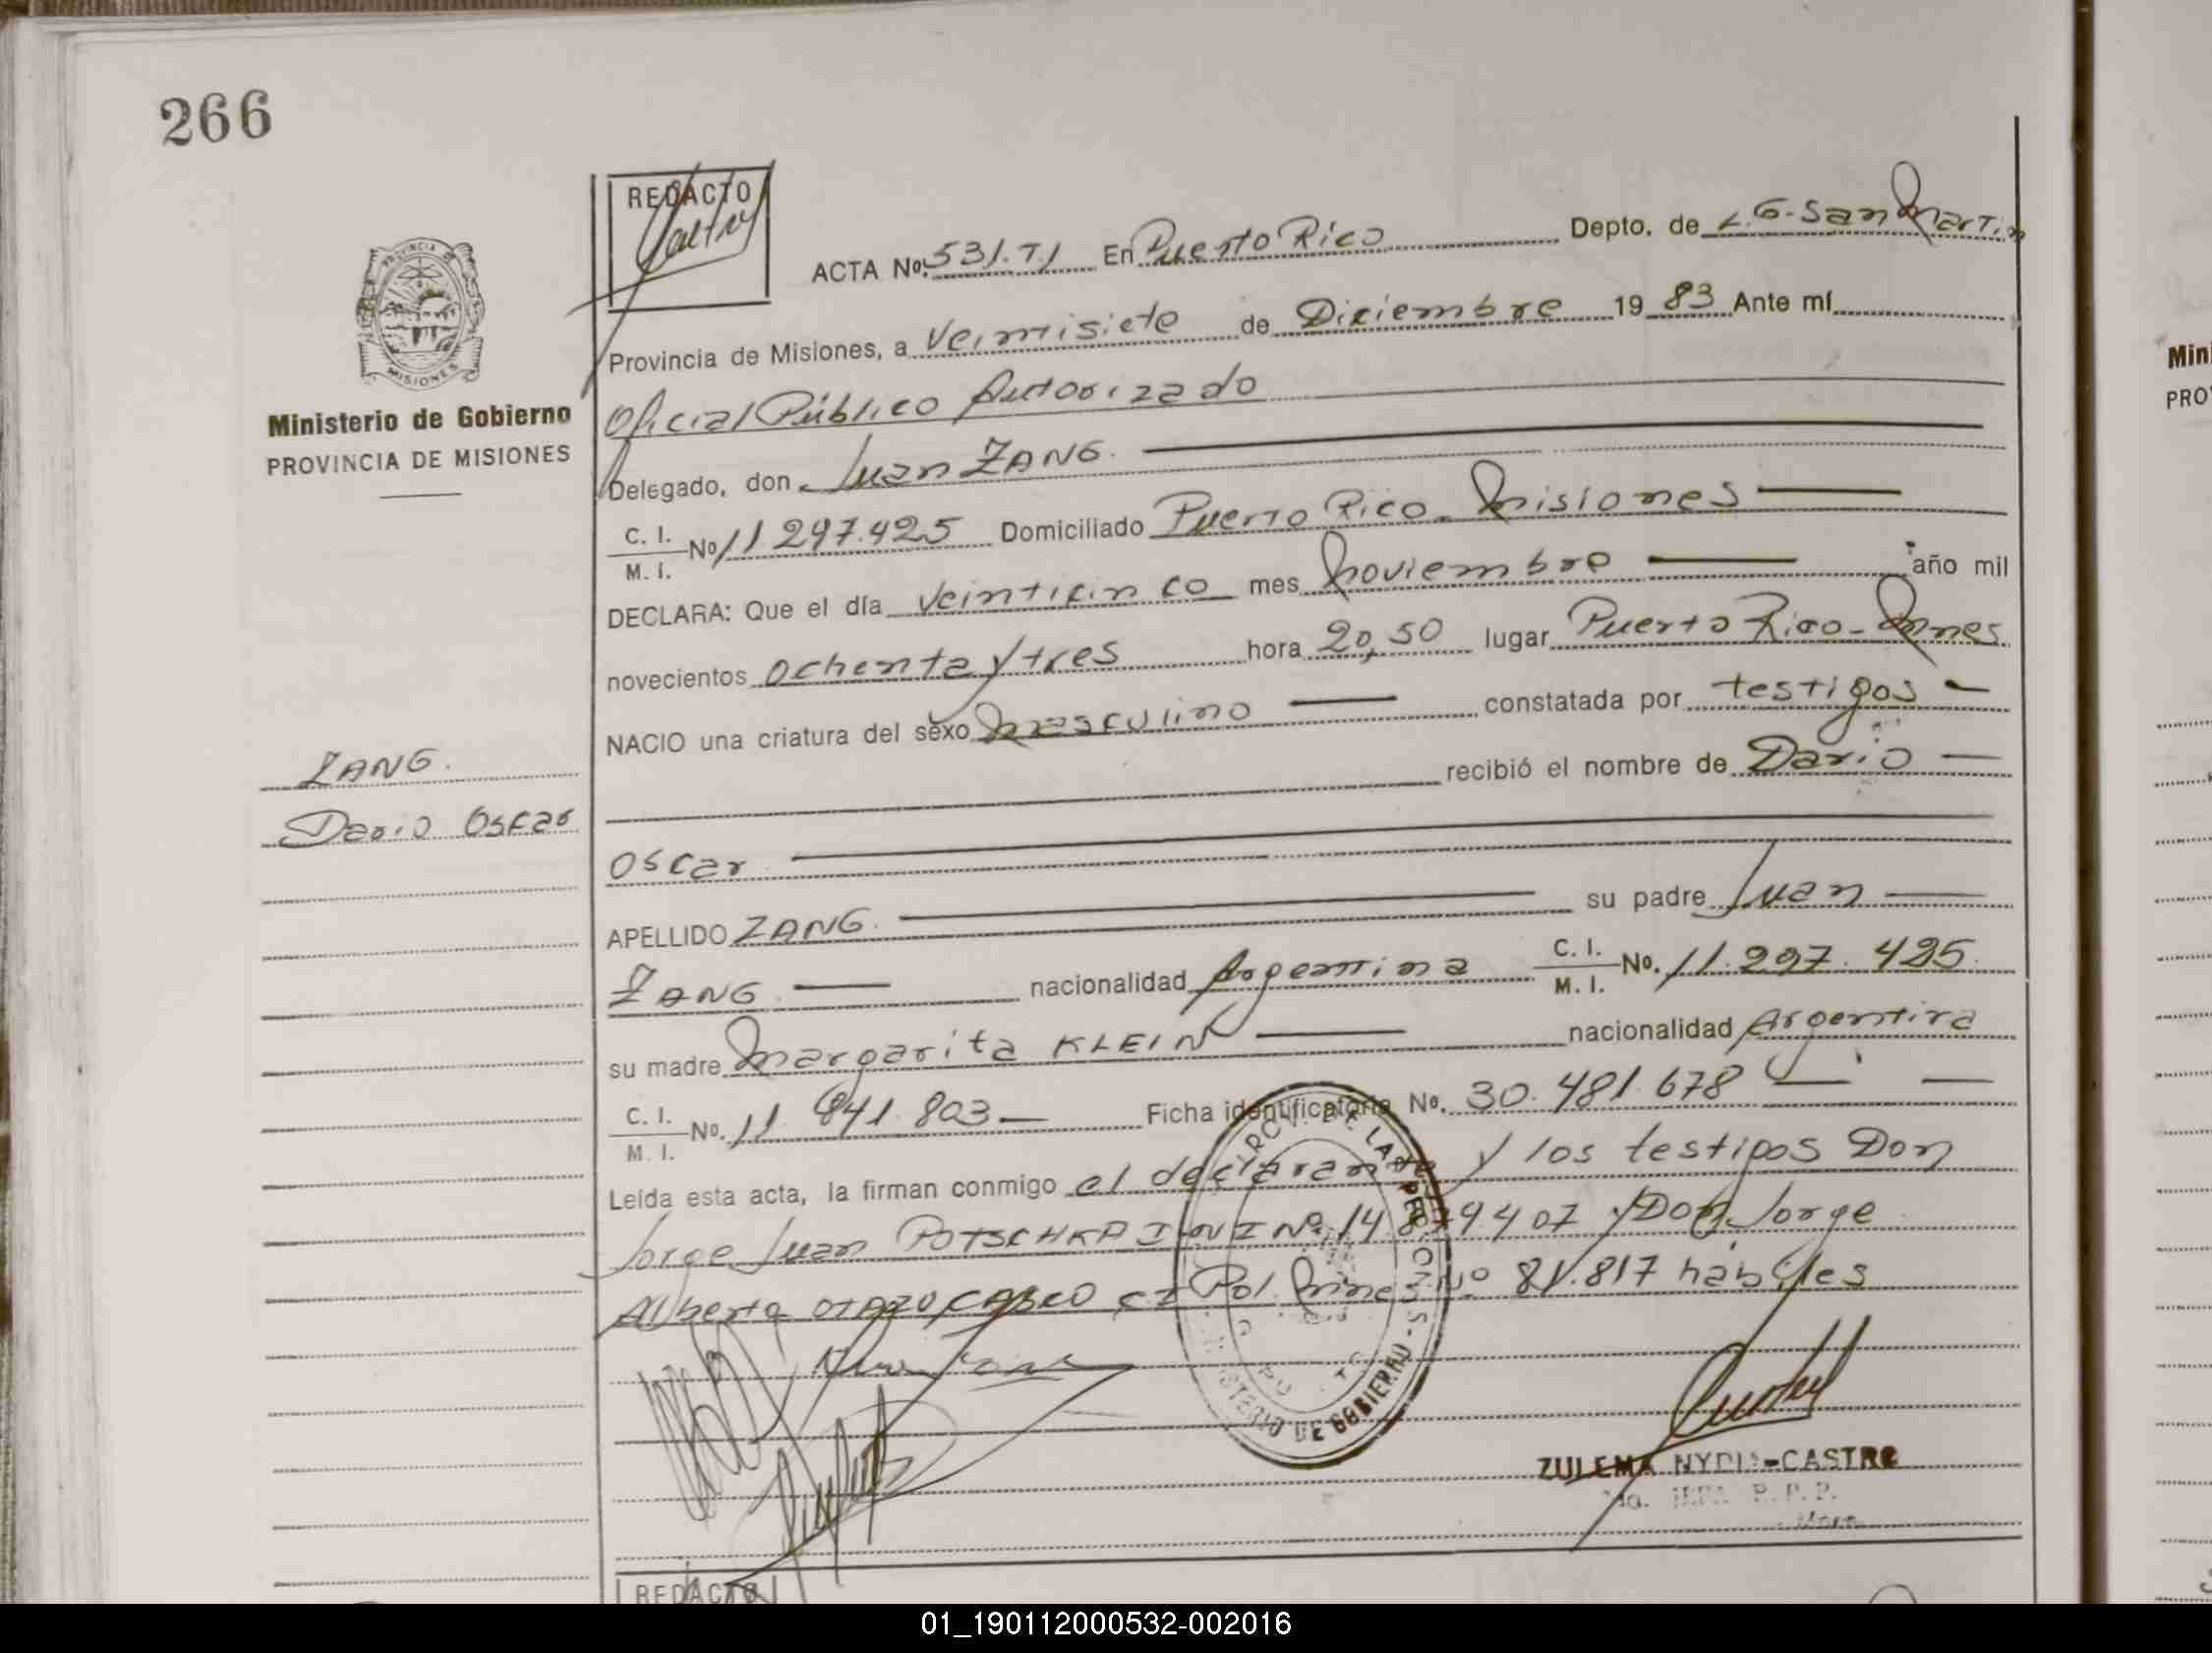 266
REDACTO
ACTA No. 531.T.I En Puerto Rico Depto. de L.G. San Martin
PROVINCIA DE
MISIONES
Ministerio de Gobierno
PROVINCIA DE MISIONES
Provincia de Misiones, a Veintisiete de Diciembre 19 83 Ante mí
Oficial Público Autorizado
Delegado, don Juan ZANG.
C. I. M. I. No 11.297.425 Domiciliado Puerto Rico - Misiones
DECLARA: Que el día veinticinco mes Noviembre año mil
novecientos ochenta y tres hora 20,50 lugar Puerto Rico - Mnes
NACIO una criatura del sexo Masculino constatada por testigos
recibió el nombre de Dario
ZANG.
Dario Oscar
Oscar
APELLIDO ZANG. su padre Juan
ZANG nacionalidad Argentina C. I. M. I. No. 11.297.425
su madre Margarita KLEIN nacionalidad Argentina
C. I. M. I. No. 11.841.803 Ficha identificatoria No. 30.481.678
Leída esta acta, la firman conmigo el declarante y los testigos Don
Jorge Juan y Don Jorge
Alberto Pol. Mnes Nº 81.817 hábiles
MINISTERIO DE GOBIERNO
ZULEMA NYDIA CASTRO
REDACTO
Min
PRO
01_190112000532-002016